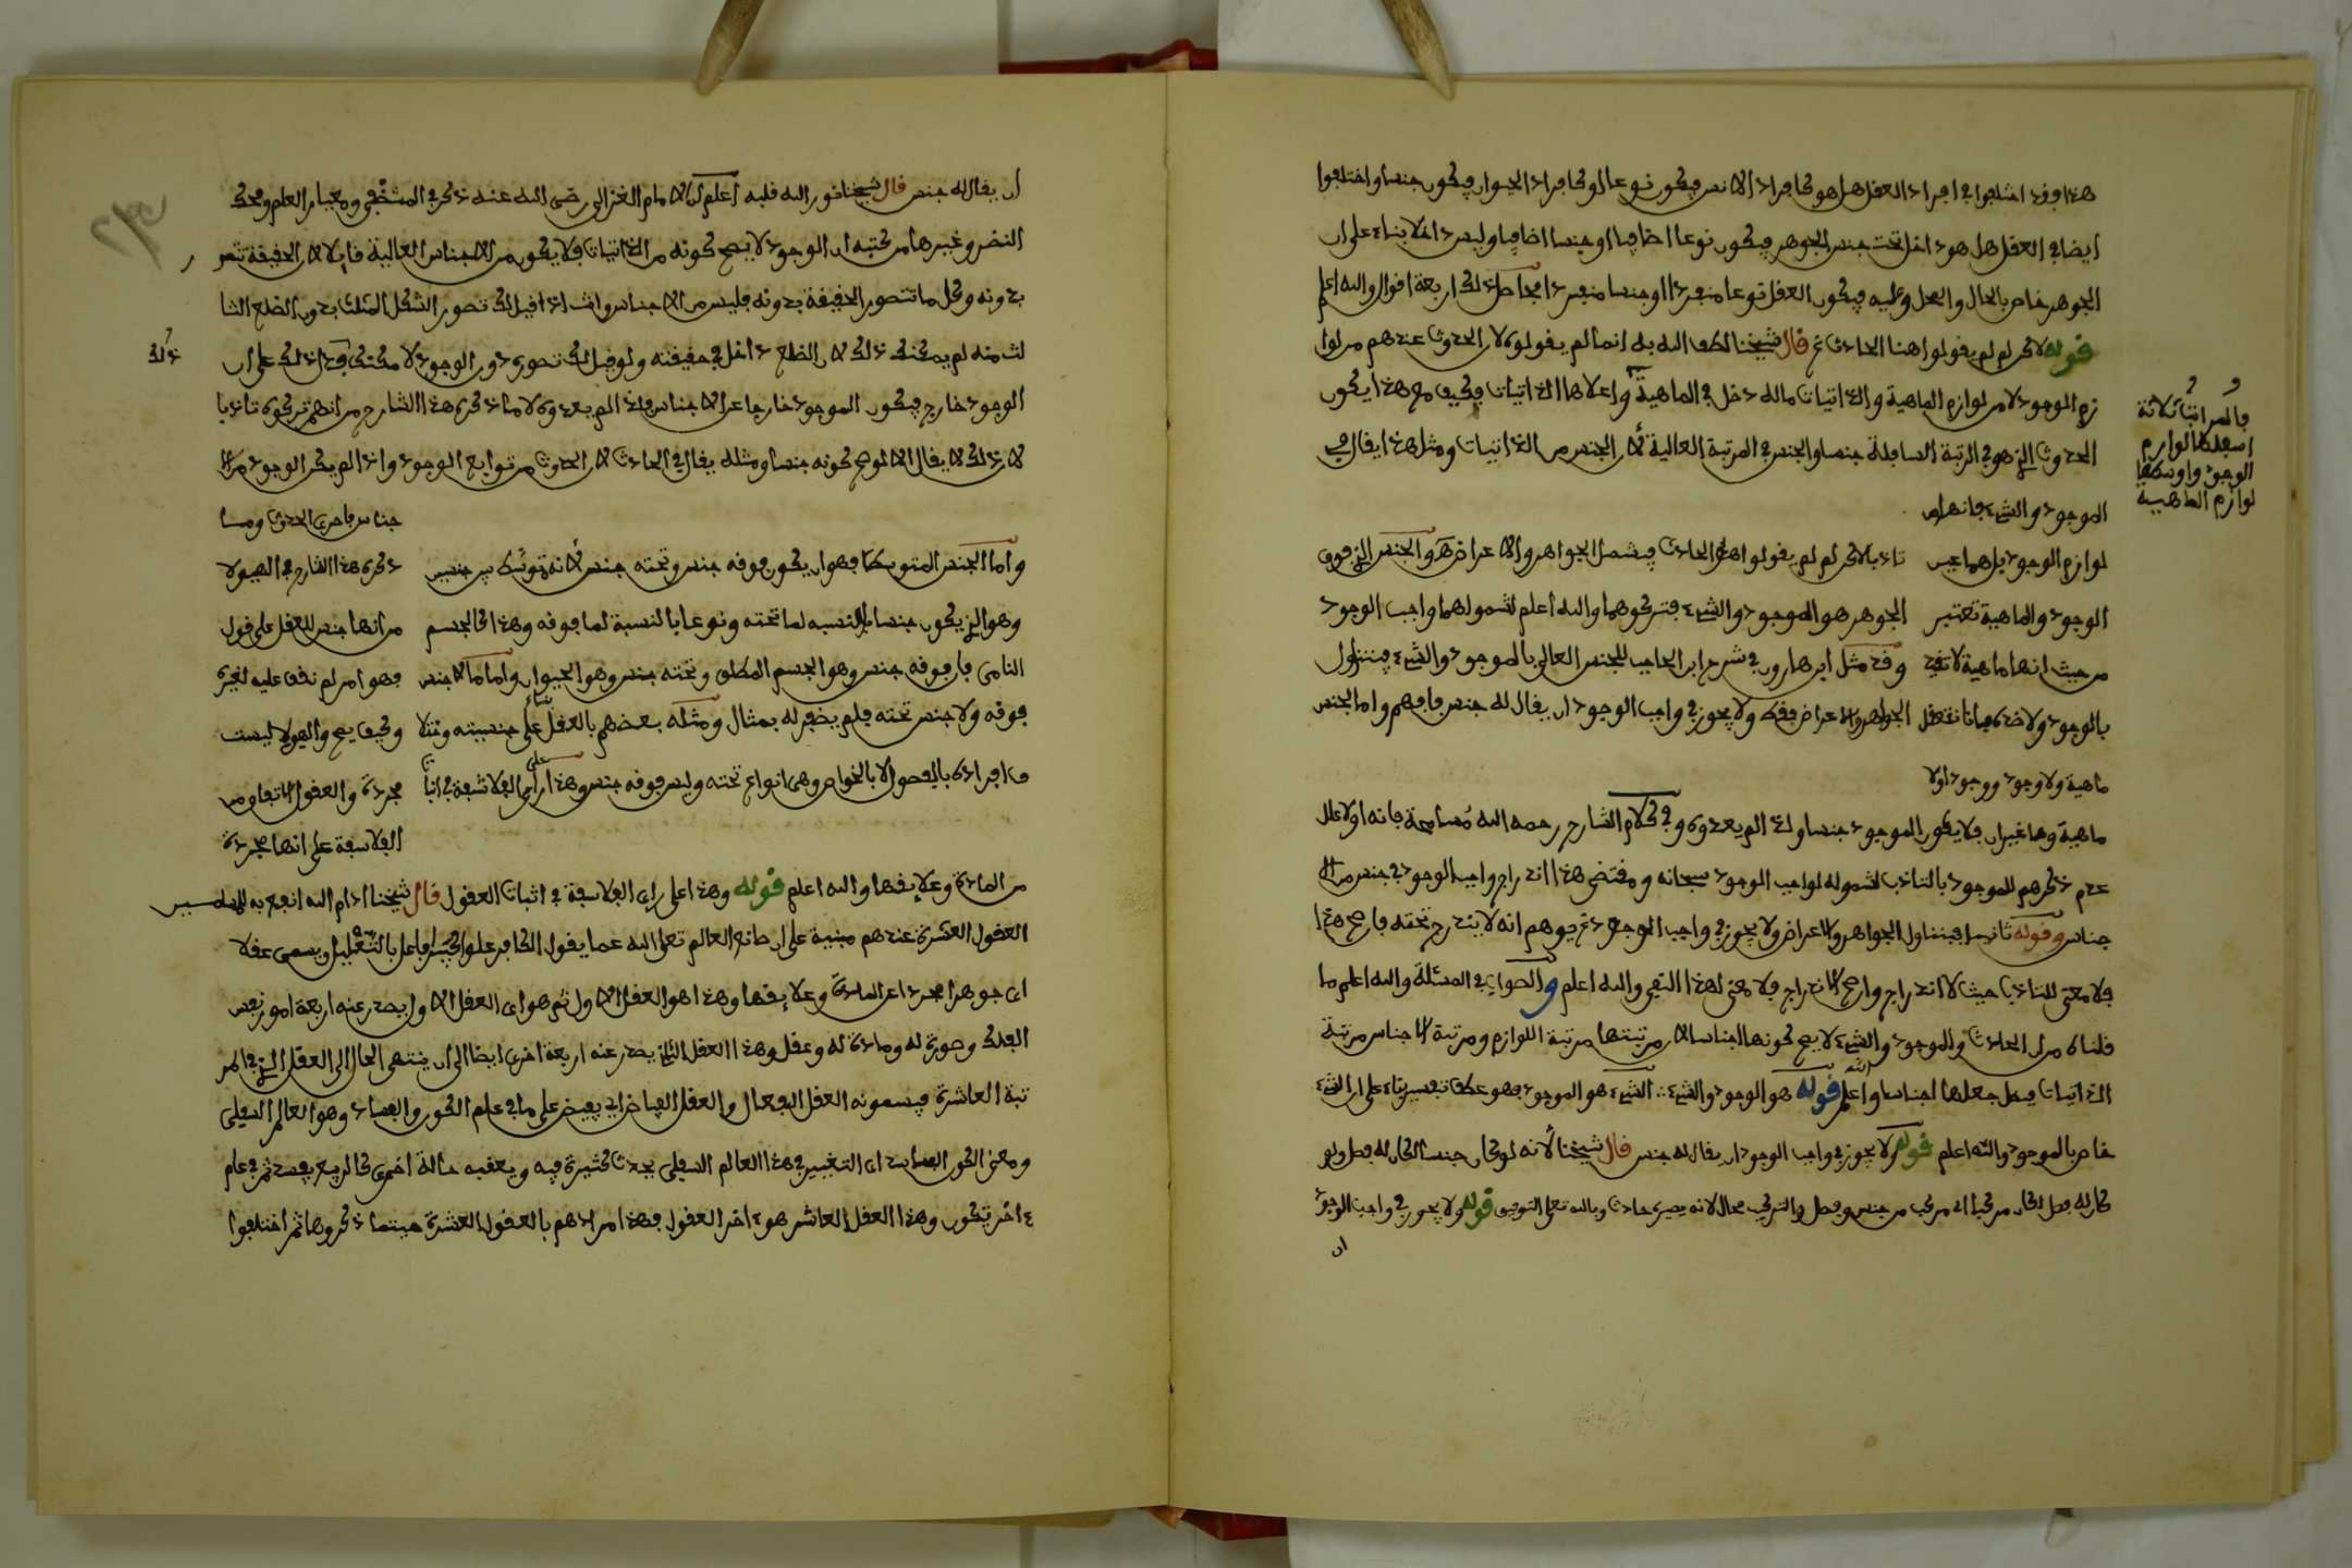 هذا وقد اختلفوا في افراد العقل هل هو كافراد الانس فيكون نوعا او كافراد الحيوان فيكون جنسا واختلفوا
ايضا في العقل هل هو داخل تحت جنس الجوهر فيكون نوعا اضافيا او جنسا اضافيا وليس داخلا بناء على ان
الجوهر خاص بالحال والمحل وعليه فيكون العقل نوعا منفردا او جنسا منفردا فحاصل ذلك اربعة اقوال والله اعلم
قوله لاكن لم لم يقولوا هنا الحادث ثم قال شيخنا لطف الله به انما لم يقولوه لان الحدوث عندهم من لوا
زم الموجود لا من لوازم الماهية والذاتيات ما له دخل في الماهية واعلاها الذاتيات فكيف مع هذا يكون
الحدوث الذي هو في الرتبة السافلة جنسا والجنس في المرتبة العالية لان الجنس من الذاتيات ومثل هذا يقال في
الموجود والشيء فانهما من
فالمراتب ثلاثة
اسفلها لوازم
الوجود واوسطها
لوازم الماهية
لوازم الوجود بل هما عين
الوجود والماهية تعتبر
من حيث انها ماهية لا تقيد
بالوجود ولا ضده فانا نتعقل
ماهية ولا وجود ووجود اولا
تاذبا لاكن لم لم يقولوا هذا الحادث فيشمل الجواهر والاعراض هو والجنس الذي فوق
الجوهر هو الموجود والشيء فتركوهما والله اعلم لشمولهما واجب الوجود
وقد مثل ابن هارون في شرح ابن الحاجب للجنس العالي بالموجود والشيء فيتناول
الجواهر والاعراض فقط ولا يجوز في واجب الوجود ان يقال له جنس فافهم واما الجنس
ماهية وهما غيران فلا يكون الموجود جنسا ولذا لم يعدوه وفي كلام الشارح رحمه الله مسامحة فانه اولا علل
عدم ذكرهم للموجود بالتاذب لشموله لواجب الوجود سبحانه ومقتضى هذا اندراج واجب الوجود في جنس من الا
جناس وقوله ثانيا فيتناول الجواهر والاعراض ولا يجوز في واجب الوجود ثم يوهم انه لا يندرج تحته فان صح هذا
فلا معنى للتاذب حيث لا اندراج وان صح الاندراج فلا معنى لهذا النفي والله اعلم والصواب في المسئلة والله اعلم ما
قلناه من ان الحادث والموجود والشيء لا يصح كونها اجناسا لان مرتبتها مرتبة اللوازم ومرتبة الاجناس مرتبة
الذاتيات فبطل جعلها اجناسا والله اعلم قوله هو الوجود والشيء ∴ الشيء هو الموجود فهو عطف تفسير بناء على ان الشيء
خاص بالموجود والله اعلم قوله ولا يجوز في واجب الوجود ان يقال له جنس قال شيخنا لانه لو كان جنسا لكان له فصل ولو
كان له فصل لكان مركبا اي مركب من جنس وفصل والتركيب محال لانه يصيره حادث وبالله تعالى التوفيق قوله ولا يجوز في واجب الوجود
ان
ان يقال له جنس قال شيخنا نور الله قلبه اعلم ان الامام الغزالي رضي الله عنه ذكر في المستصفى ومعيار العلم ومحك
النضر وغيرها من كتبه ان الوجود لا يصح كونه من الذاتيات فلا يكون من الاجناس العالية قايلا لان الحقيقة تتصور
بدونه وكل ما تتصور الحقيقة بدونه فليس من الاجناس وانت اذا قيل لك تصور الشكل المثلث بدون الضلع الثا
لث منه لم يمكنك ذلك لان الضلع داخل في حقيقته ولو قيل لك تصوره دون الوجود لامكنك فدل ذلك على ان
ذلك
الوجود خارج فيكون الموجود خارجا عن الاجناس ولذا لم يعدوه لا ما ذكره هذا الشارح من انهم تركوه تاذبا
لان ذلك لا يقال الا لو صح كونه جنسا ومثله يقال في الحادث لان الحدوث من توابع الوجود واذا لم يكن الوجود من الا
جناس فاحرى الحدوث وما
ذكره هذا الشارح في الهيولا
من انها جنس للعقل على قول
فهو امر لم نقف عليه لغيره
وكيف يصح والهيولا ليست
مجردة والعقول اتفاق من
الفلاسفة على انها مجردة
واما الجنس المتوسط فهو ان يكون فوقه جنس وتحته جنس لانه توسط بين جنسين
وهو الذي يكون جنسا بالنسبة لما تحته ونوعا بالنسبة لما فوقه وهذا كالجسم
النامي فان فوقه جنس وهو الجسم المطلق وتحته جنس وهو الحيوان واما ما لا جنس
فوقه ولا جنس تحته فلم يضفر له بمثال ومثله بعضهم بالعقل بناء على جنسيته وتمثلا
ف افراده بالفصول لا بالخواص وهي انواع تحته وليس فوقه جنس وهذا على راي الفلاسفة في اثبا
من المادة وعلايقها والله اعلم قوله وهذا على راي الفلاسفة في اثبات العقول قال شيخنا ادام الله النفع به للمسلمين
العقول العشرة عندهم مبنية على ان صانع العالم تعالى الله عما يقول الكافر علوا كبيرا فاعل بالتعليل ويسمى عقلا
اي جوهرا مجردا عن المادة وعلايقها وهذا هو العقل الاول ثم هو اي العقل الاول يصدر عنه اربعة امور نفس
الفلك وصورة له ومادة له وعقل وهذا العقل الثاني يصدر عنه اربعة اخرى ايضا الى ان ينتهي الحال الى العقل الذي في المر
تبة العاشرة فيسمونه العقل الفعال والعقل الفياض اي يفيض على ما في عالم الكون والفساد وهو العالم السفلي
ومعنى الكون الفساد اي التغيير في هذا العالم السفلي يحدث كثيرة فيه ويعقبه حالة اخرى كالربيع يفسد ثم في عام
ء اخر يتكون وهذا العقل العاشر هو ءاخر العقول فهذا مرادهم بالعقول العشرة حيثما ذكروها ثم اختلفوا